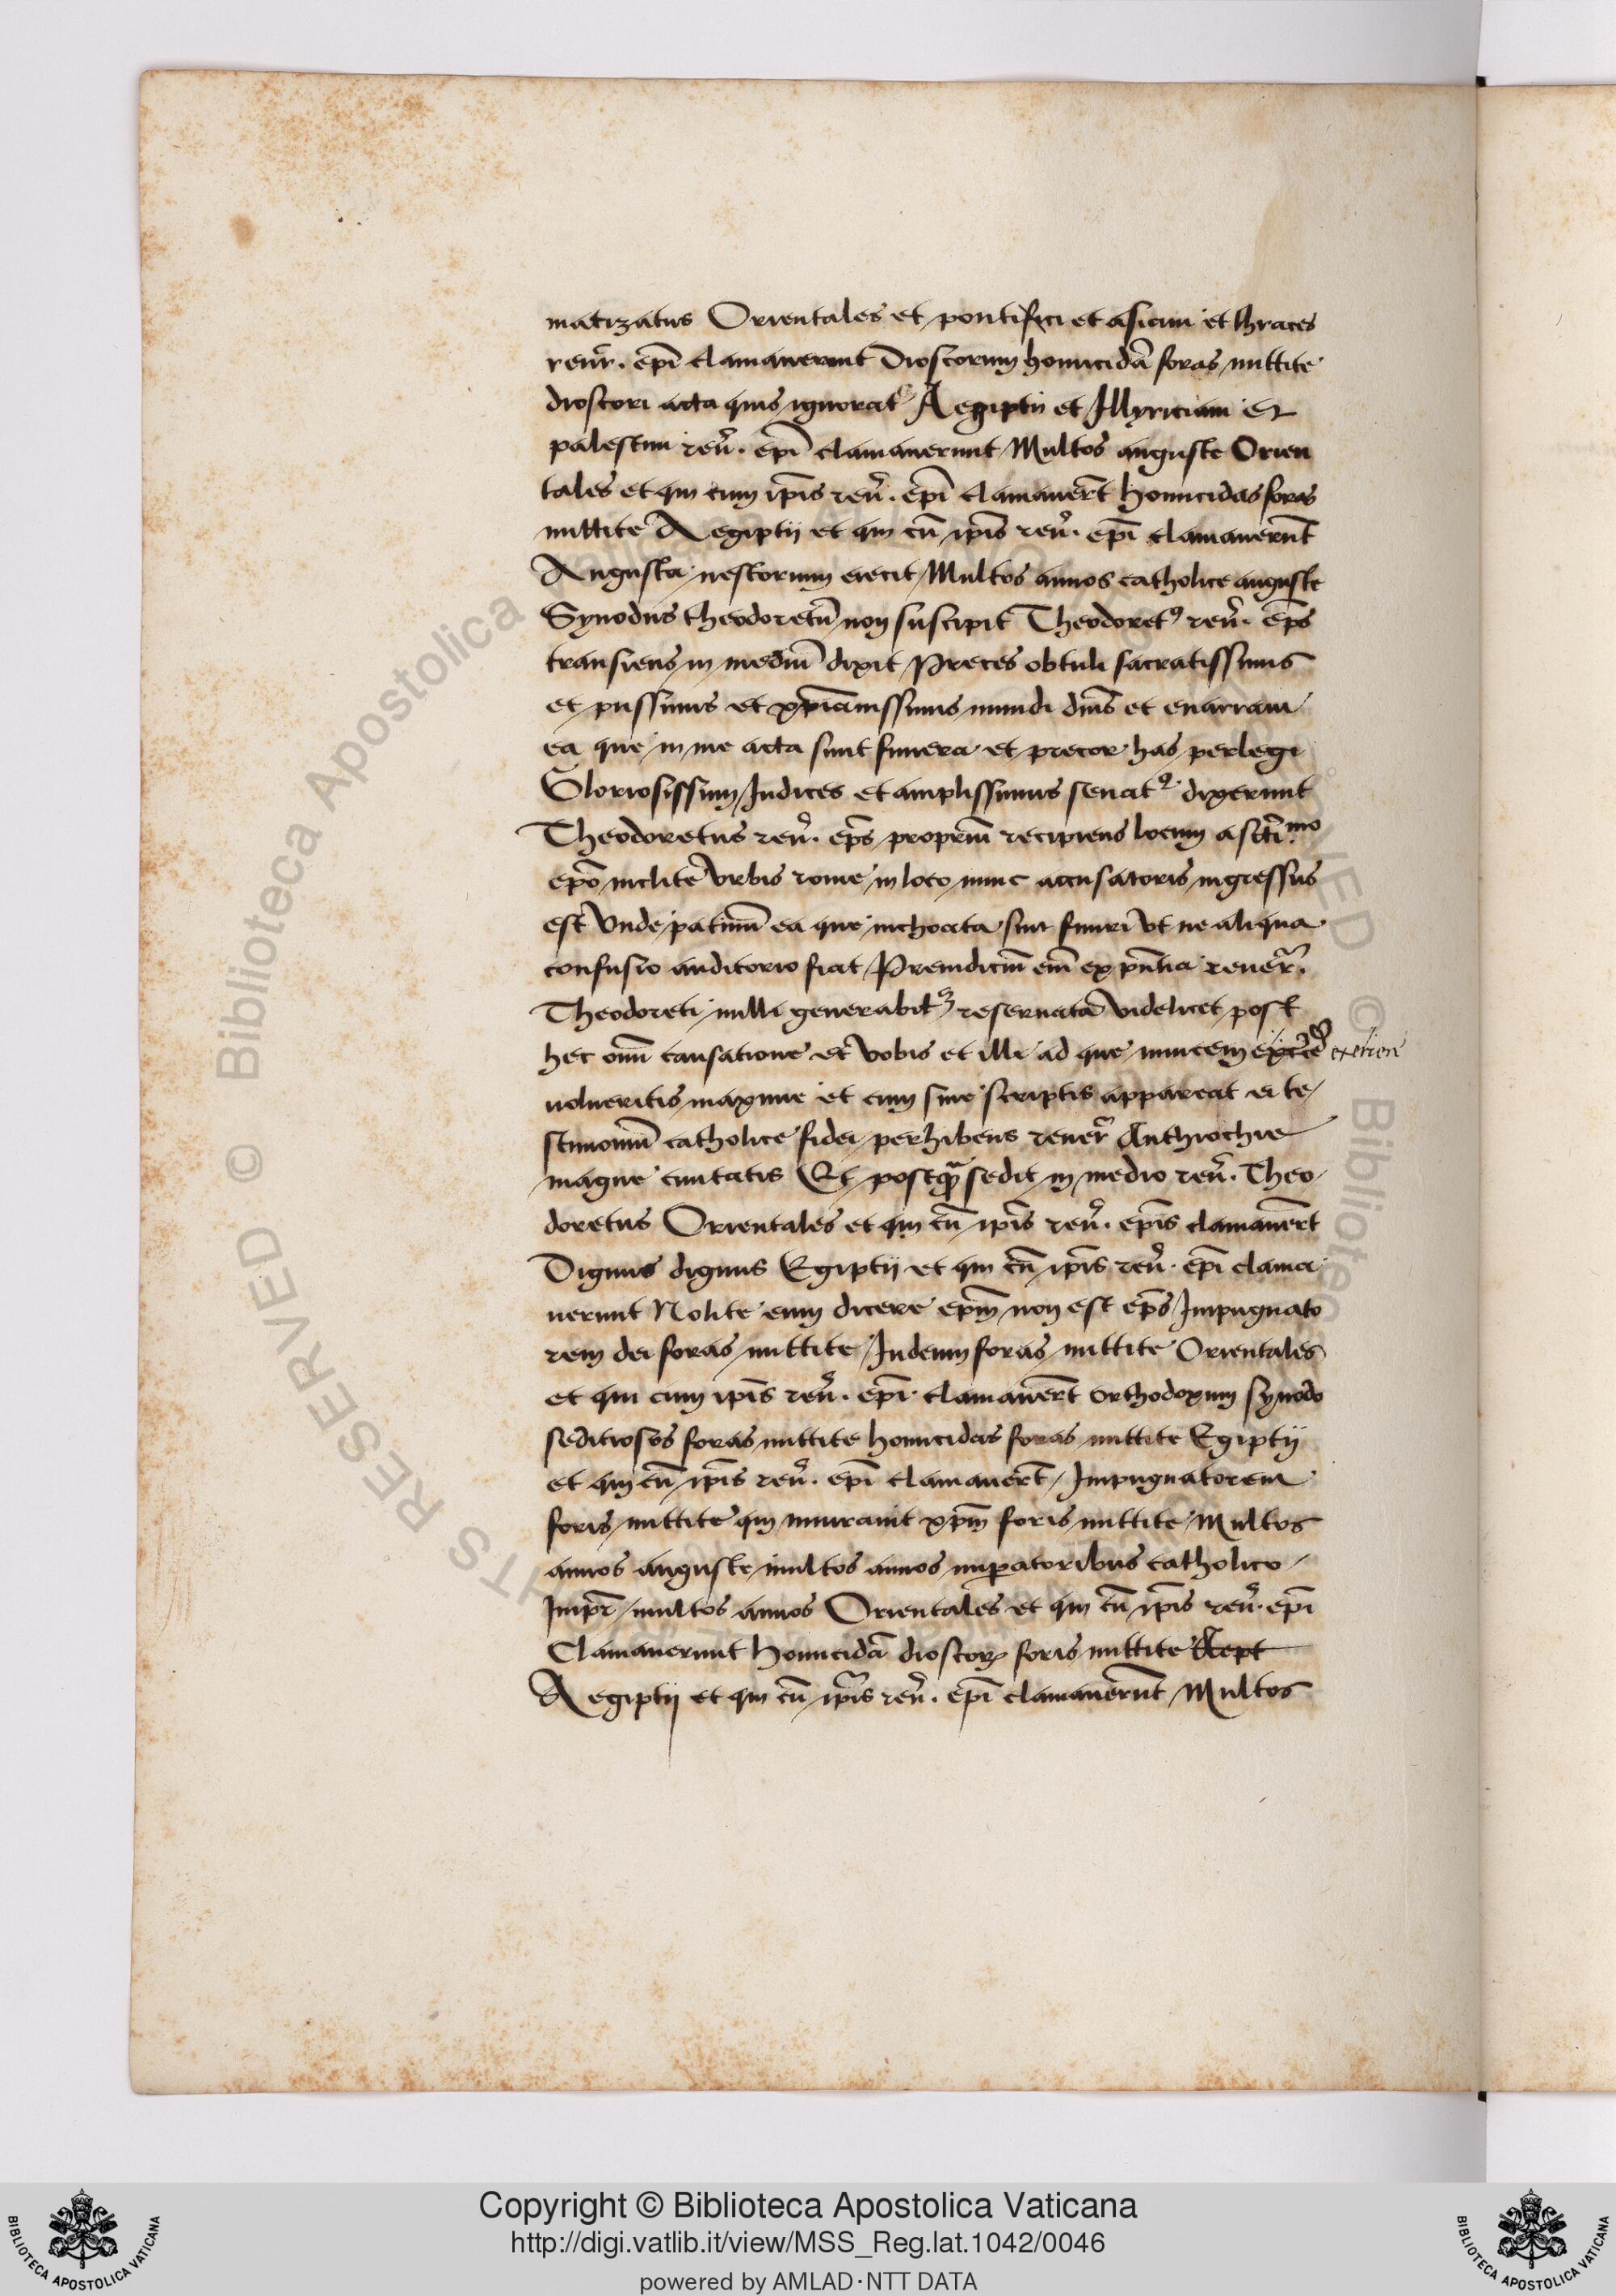 matizatus Orientales et pontifici et asiani et thraces
reuer̄. ep̄i clamauerunt Dioscorum homicidā foras mittite
dioscori acta quis ignorat Aegiptii et Illyriciani Et
palestini reū. ep̄i clamauerunt Multos auguste Orien
tales et qui cum ip̄is reū. ep̄i clamauer̄t homicidas foras
mittite Aegiptij et qui cū ip̄is reū. ep̄i clamauerūt
Augusta nestorium eiecit Multos annos catholice auguste
Synodus theodoretū non suscipit Theodoretꝰ reū. ep̄s
transiens in mediū dixit Preces obtuli sacratissimis
et piissimis et xp̄ianissimis mundi dn̄is et enarraui
ea que in me acta sunt funera et precor has perlegi
Gloriosissimi Iudices et amplissimus senatꝰ dixerunt
Theodoretus reū. ep̄s propriū recipiens locum a sctī.mo
ep̄o inclite Vrbis rome in loco nunc accusatoris ingressus
est Vnde patimī ea que inchoata sint finiri Vt ne aliqua
confusio auditorio fiat Preiudiciū em̄ ex pn̄tia reuer̄.
Theodoreti nulli generabitꝛ reseruata Videlicet post
hec om̄i causatione et Vobis et illi ad que inuicem exercē exetiere
uolueritis maxime et cum sine scriptis appareat ei te
stimoniū catholice fidei perhibens reuer̄ Anthiochie
magne ciuitatis Et postq̄ sedit in medio reū. Theo
doretus Orientales et qui cū ip̄is reū. ep̄is clamauer̄t
Dignus dignus Egiptij et qui cū ip̄is reū. ep̄i clama
uerunt Nolite eum dicere ep̄m non est ep̄s Impugnato
rem dei foras mittite Iudeum foras mittite Orientales
et qui cum ip̄is reū. ep̄i clamauer̄t orthodoxum synodo
seditiosos foras mittite homicidas foras mittite Egiptij
et qui cū ip̄is reū. ep̄i clamauer̄t Impugnatorem
foris mittite qui iniurauit xp̄m foris mittite Multos
annos auguste multos annos imꝑatoribus catholico
Imp̄r multos annos Orientales et qui cū ip̄is reū. ep̄i
Clamauerunt homicidā dioscoꝝ foris mittite
Aegiptij et qui cū ip̄is reū. ep̄i clamauerūt Multos
RIGHTS RESERVED © Biblioteca Apostolica Vaticana
Copyright © Biblioteca Apostolica Vaticana
http://digi.vatlib.it/view/MSS_Reg.lat.1042/0046
powered by AMLAD·NTT DATA
BIBLIOTECA APOSTOLICA VATICANA
BIBLIOTECA APOSTOLICA VATICANA